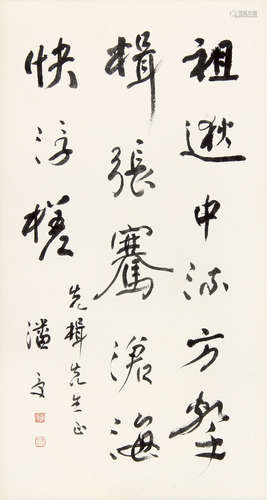 祖逖中流方擊
楫張騫滄海
快浮槎
先楫先生正
潘受